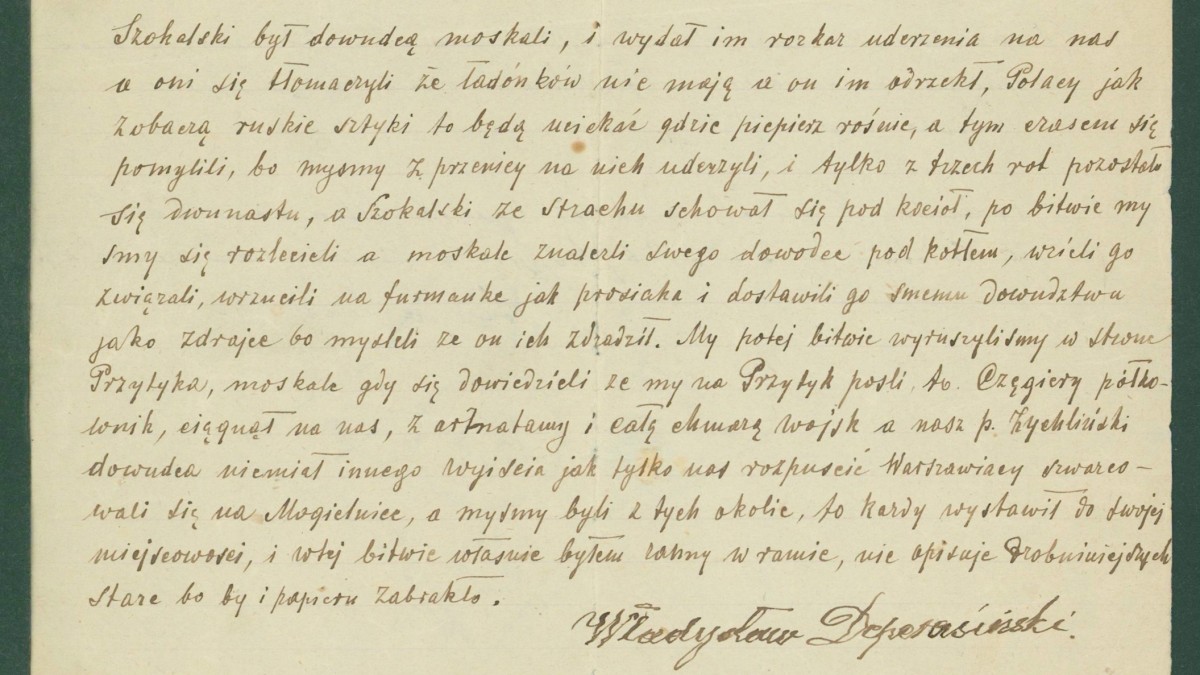 Szokalski był dowudcą moskali, i wydał im rozkaz uderzenia na nas
a oni się tłomaczyli że ładónków nie mają a on im odrzekł, Polacy jak
zobaczą ruskie sztyki to będą uciekać gdzie piepierz rośnie, a tym czasem się
pomylili, bo mysmy z przenicy na nich uderzyli, i tylko z trzech rot pozostało
się dwunastu, a Szokalski ze strachu schował się pod kocioł, po bitwie my
smy się rozlecieli a moskale znalezli swego dowodce pod kotłem, wzieli go
związali, wrzucili na furmanke jak prosiaka i dostawili go smemu dowudztwu
jako zdrajce bo mysleli ze on ich zdradził. My potej bitwie wyruszylismy w strone
Przytyka, moskale gdy się dowiedzieli ze my na Przytyk posli, to. Częgiery półko-
wnik, ciągnął na nas, z armatamy i całą chmarą wojsk a nasz p. Zychliński
dowudca niemiał innego wyjscia jak tylko nas rozpuscić Warszawiacy szwarco-
wali się na Mogielnice, a mysmy byli z tych okolic, to kazdy wystawił do swojej
miejscowosci, i wtej bitwie własnie byłem ranny w ramie, nie opisuje drobniniejszych
stare bo by i papieru zabrakło.
Władysław